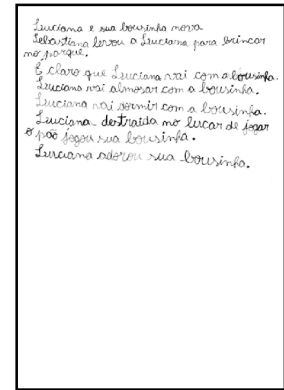 Luciana e sua bousinha nova
Sebastiana levou a Luciana para brincar
no parque.
É claro que Luciana vai com a bousinha.
Luciana vai almosar com a bousinha.
Luciana vai dormir com a bousinha.
Luciana destraida no lucar de jogar
o pão jogou sua bousinha.
Luciana adorou sua bousinha.